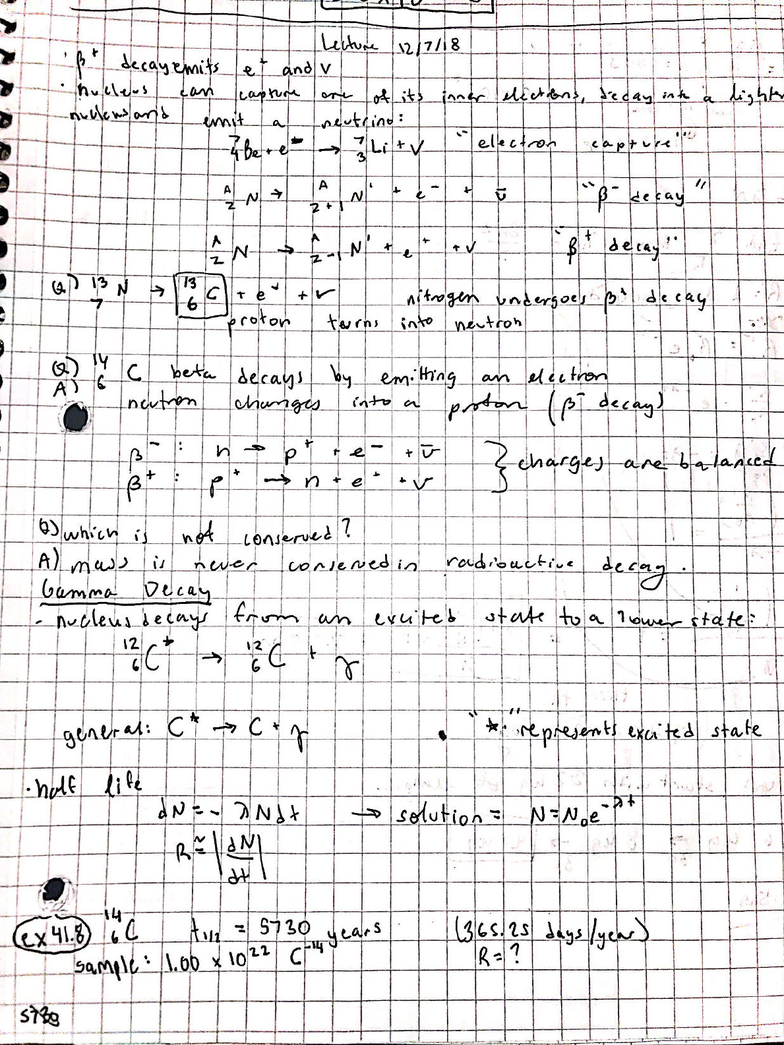 Lecture 12/7/18
· β⁺ decay emits e⁺ and ν
· nucleus can capture one of its inner electrons, decay into a lighter
nucleus and emit a neutrino:
⁷₄Be + e⁻ → ⁷₃Li + ν "electron capture"
ᴬ₂N → ᴬ₂₊₁N' + e⁻ + ν̄ "β⁻ decay"
ᴬ₂N → ᴬ₂₋₁N' + e⁺ + ν "β⁺ decay"
Q) ¹³₇N → ¹³₆C + e⁺ + ν nitrogen undergoes β⁺ decay
proton turns into neutron
Q) ¹⁴₆C beta decays by emitting an electron
A) neutron changes into a proton (β⁻ decay)
β⁻ : n → p⁺ + e⁻ + ν̄
β⁺ : p⁺ → n + e⁺ + ν } charges are balanced
Q) which is not conserved?
A) mass is never conserved in radioactive decay.
Gamma Decay
- nucleus decays from an excited state to a lower state:
¹²₆C* → ¹²₆C + γ
general: C* → C + γ • "*" represents excited state
· half life
dN = - λNdt → solution = N = N₀e^-λt
R ≅ |dN/dt|
ex 41.8 ¹⁴₆C t₁/₂ = 5730 years (365.25 days/year)
sample: 1.00 x 10²² C⁻¹⁴ R = ?
5730